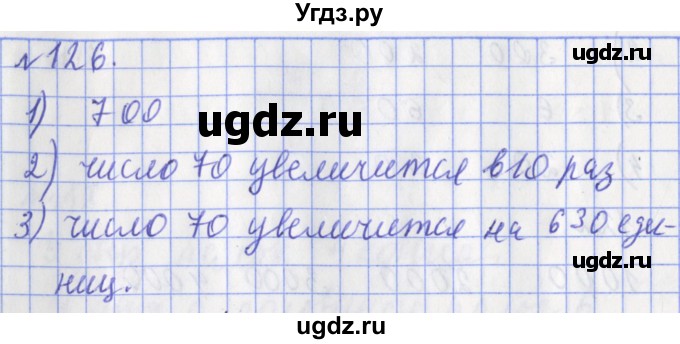 Угдз.ру
№126.
ugdz.ru
1) 700
ugdz.ru
2) число 70 увеличится в 10 раз
3) число 70 увеличится на 630 еди-
ugdz.ru
ниц.
ugdz.ru